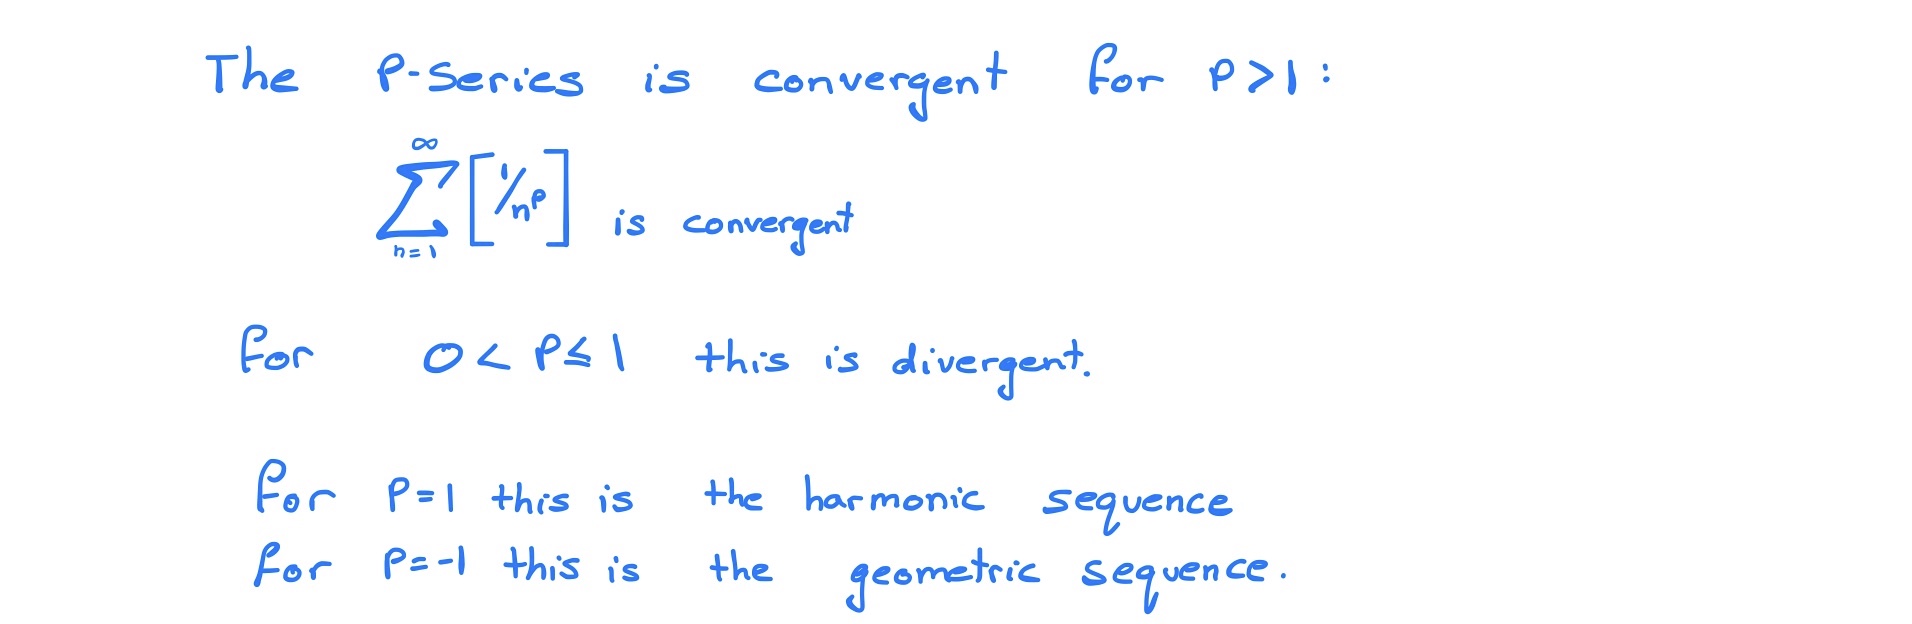 The P-Series is convergent for P>1:
∞
∑ [1/nᵖ] is convergent
n=1
for 0 < P ≤ 1 this is divergent.
for P=1 this is the harmonic sequence
for P=-1 this is the geometric sequence.